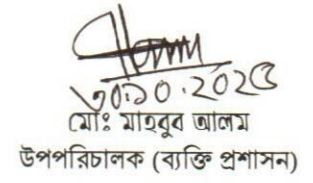 ৩০.১০.2025
মোঃ মাহবুব আলম
উপপরিচালক (ব্যক্তি প্রশাসন)